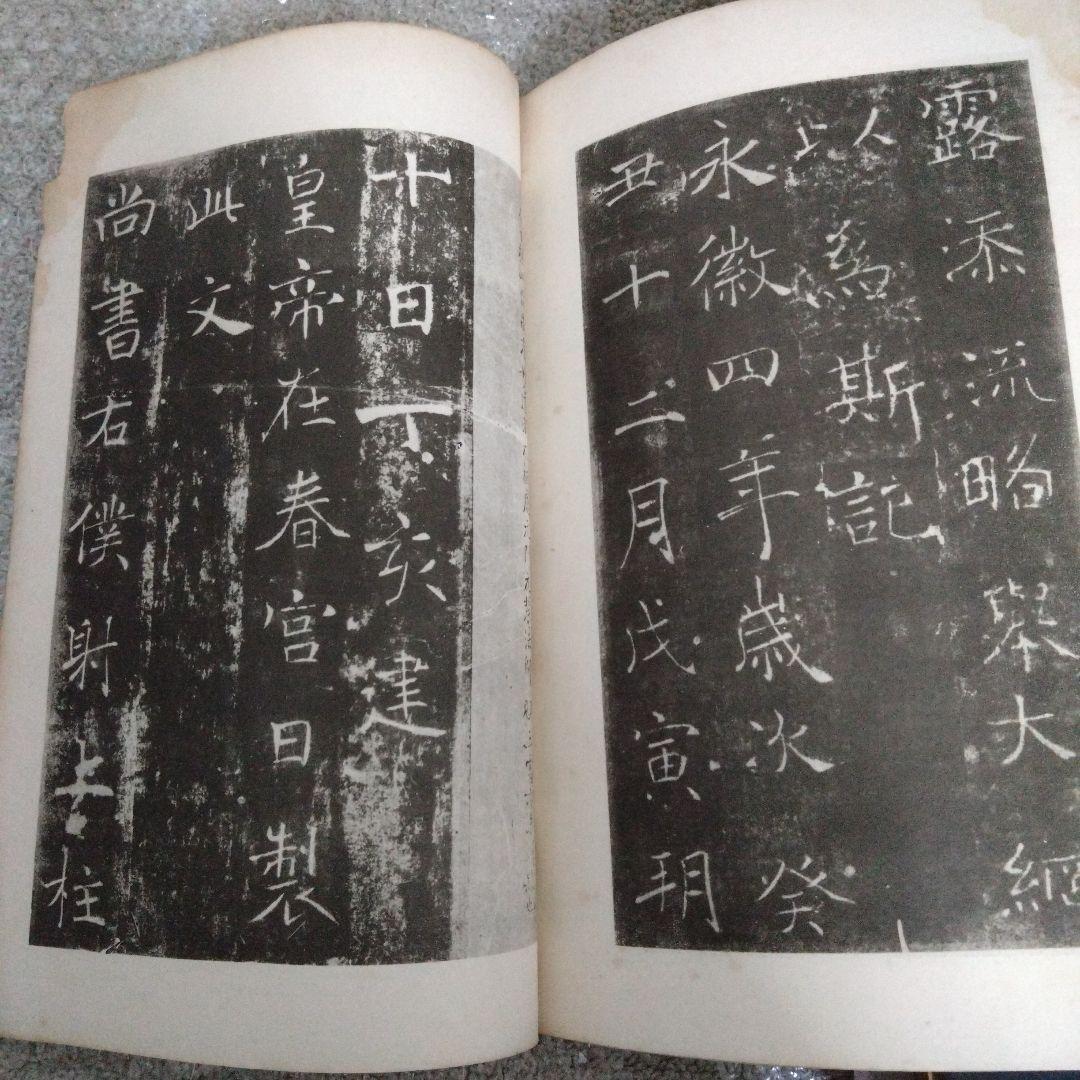 露添流略舉大綱
以為斯記
永徽四年歲次癸
丑十二月戊寅朔
十日丁亥建
皇帝在春宮日製
此文
尚書右僕射上柱